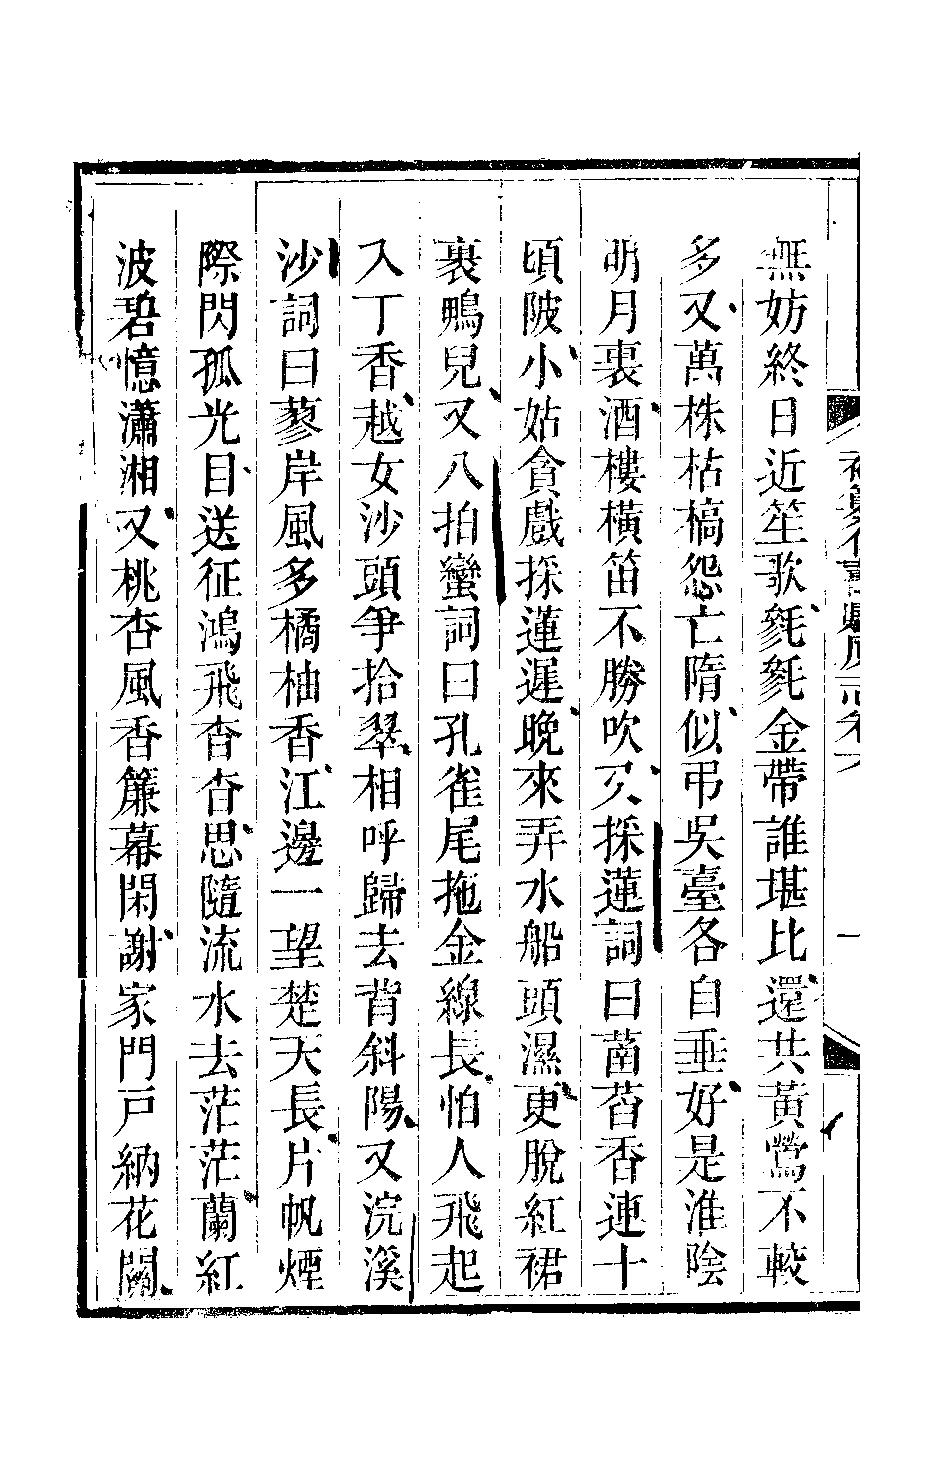 無妨終日近笙歌毿毿金帶誰堪比還共黃鶯不較
多又萬株枯槁怨亡隋似弔吳臺各自垂好是淮陰
明月裏酒樓橫笛不勝吹又採蓮詞曰菡萏香連十
頃陂小姑貪戲採蓮遲晚來弄水船頭濕更脫紅裙
裹鴨兒又八拍蠻詞曰孔雀尾拖金線長怕人飛起
入丁香越女沙頭爭拾翠相呼歸去背斜陽又浣溪
沙詞曰蓼岸風多橘柚香江邊一望楚天長片帆煙
際閃孤光目送征鴻飛杳杳思隨流水去茫茫蘭紅
波碧憶瀟湘又桃杏風香簾幕閑謝家門戶納花關